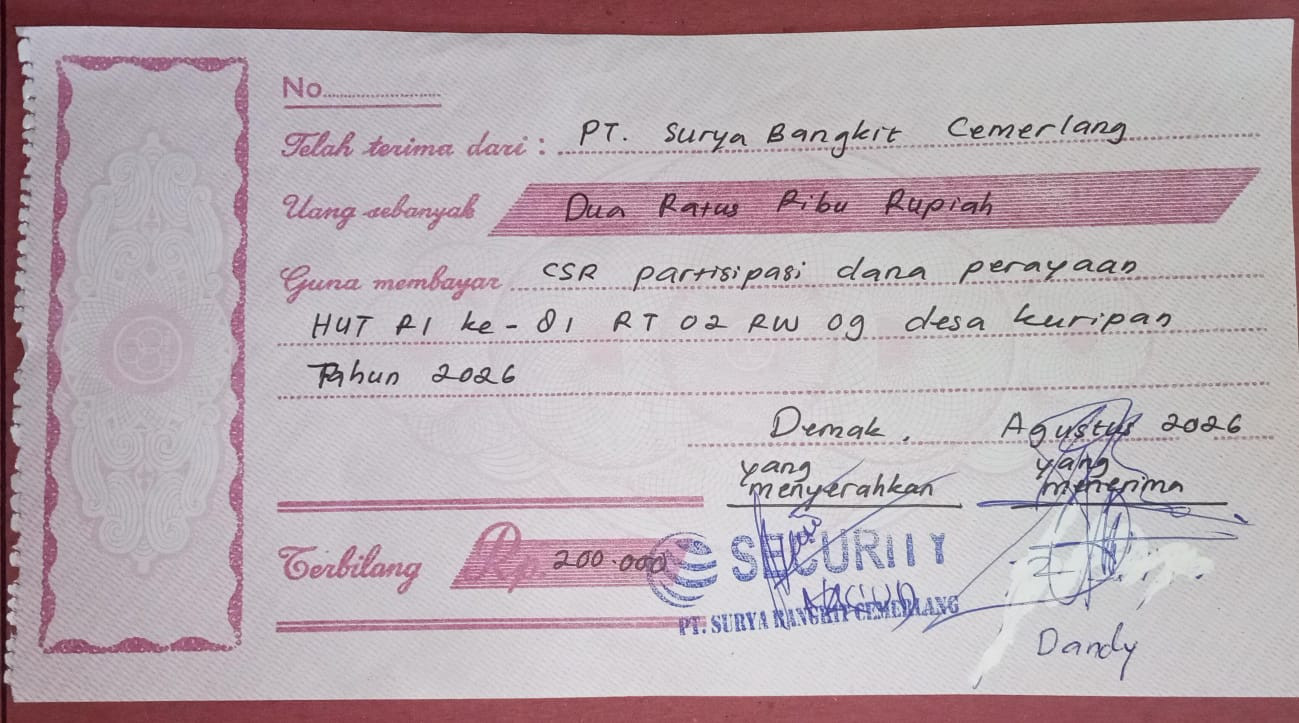 No.....................
Telah terima dari : PT. Surya Bangkit Cemerlang
Uang sebanyak Dua Ratus Ribu Rupiah
Guna membayar CSR partisipasi dana perayaan
HUT RI ke-81 RT 02 RW 09 desa kuripan
Tahun 2026
Demak, Agustus 2026
yang menyerahkan yang menerima
Terbilang Rp 200.000
SECURITY
PT. SURYA BANGKIT CEMERLANG
Dandy